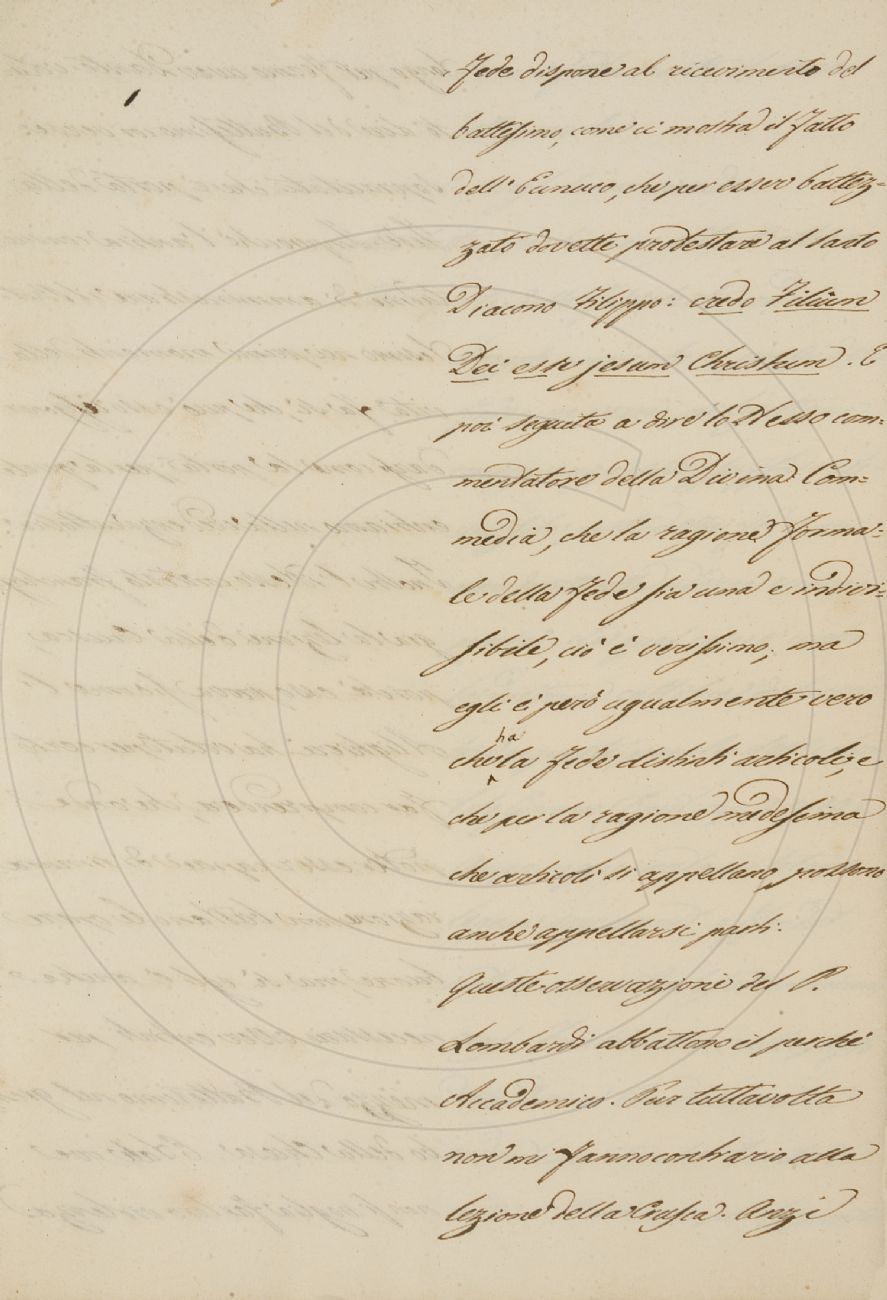 Fede dispone al ricevimento del
battesimo, come ci mostra il fatto
dell' Eunuco, che per esser battez-
zato dovette protestare al santo
Diacono Filippo: credo Filium
Dei esse jesum Christum. E
poi seguita a dire lo stesso com-
mentatore della Divina Com-
media, che la ragione forma-
le della fede sia una e indivi-
sibile, ciò è verissimo; ma
egli è però ugualmente vero
che ha la Fede distinti articoli, e
che per la ragione medesima
che articoli si appellano, possono
anche appellarsi parti.
Queste osservazioni del P.
Lombardi abbattono il perchè
Accademico. Pur tuttavolta
non mi fanno contrario alla
lezione della Crusca. Anzi